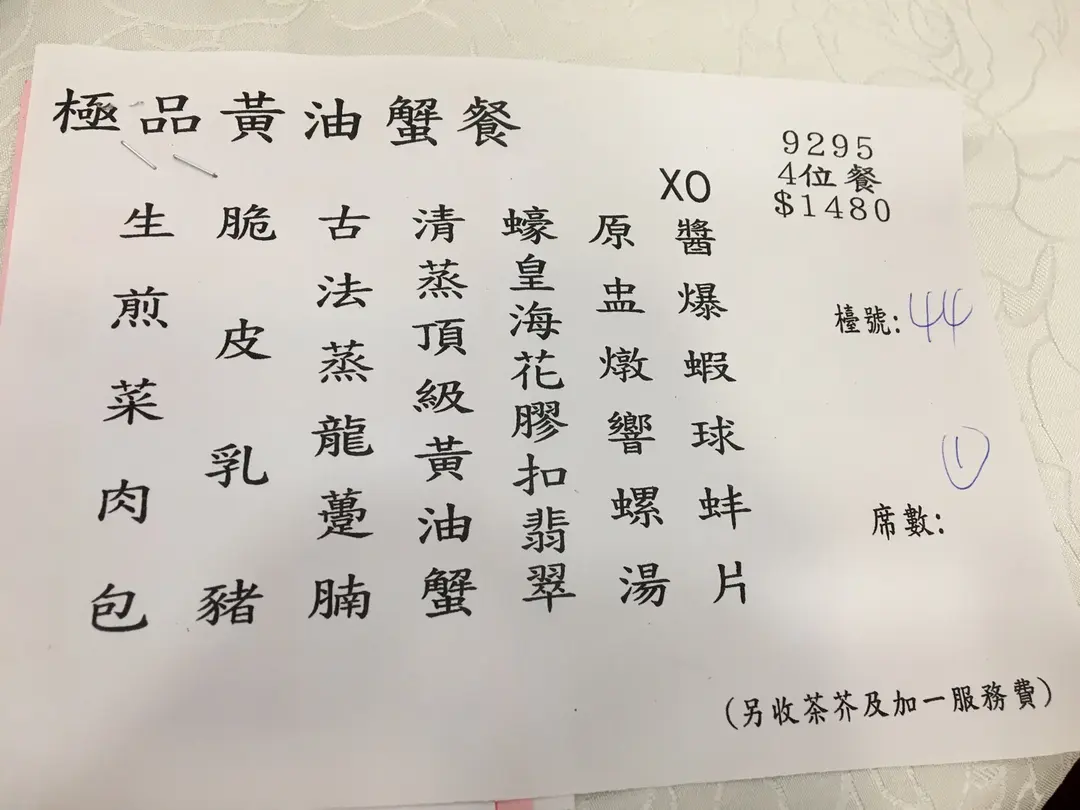 極品黃油蟹餐
9295
4位餐
$1480
XO醬爆蝦球蚌片
原盅燉響螺湯
蠔皇海花膠扣翡翠
清蒸頂級黃油蟹
古法蒸龍躉腩
脆皮乳豬
生煎菜肉包
檯號:44
①
席數:
(另收茶芥及加一服務費)